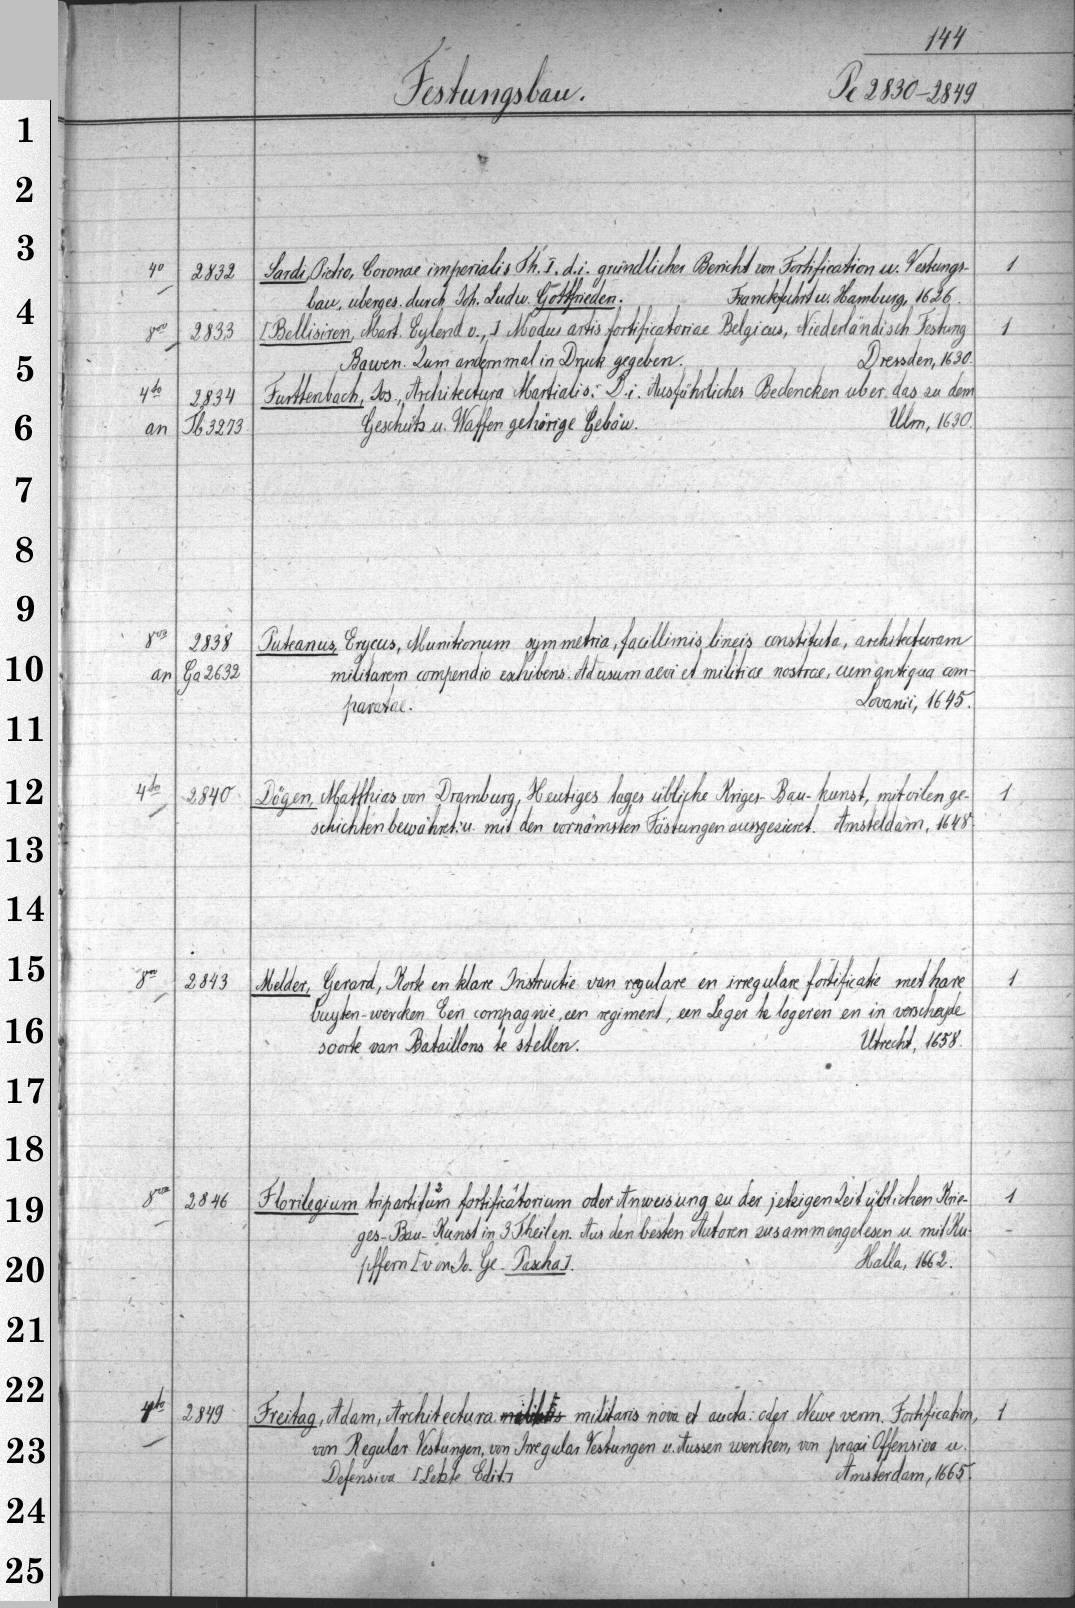 144
Festungsbau. Pe 2830-2849
1
2
3
4o 2832 Sardi, Pietro, Coronae imperialis Th. I. d.i. gründlicher Bericht von Fortification u. Vestungs- 1
4
bau, uberges. durch Joh. Ludw. Gottfrieden. Franckfuhrt u. Hamburg, 1626.
8vo 2833 [Bellisiren, Mart. Eylend v.,] Modus artis fortificatoriae Belgicus, Niederländisch Festung 1
5
Bawen. Zum andernmal in Druck gegeben. Dressden, 1630.
4to 2834 Furttenbach, Jos., Architectura Martialis: D.i. Ausführliches Bedencken uber das zu dem
6
an Tb 3273 Geschütz u. Waffen gehörige Gebäw. Ulm, 1630.
7
8
9
8vo 2838 Puteanus, Erycus, Munitionum symmetria, facillimis lineis constituta, architecturam
10
an Ga 2632 militarem compendio exhibens. Ad usum aevi et militiae nostrae, cum antiqua com-
paratae. Lovanii, 1645.
11
12
4to 2840 Dögen, Matthias von Dramburg, Heutiges tages übliche Kriges- Bau-kunst, mit vilen ge- 1
schichten bewähret: u. mit den vornämsten Fästungen aussgezieret. Amsteldam, 1648.
13
14
15
8vo 2843 Melder, Gerard, Korte en klare Instructie van regulare en irregulare fortificatie met hare 1
buyten-wercken Een compagnie, een regiment, een Leger te logeren en in verscheyde
16
soorte van Bataillons te stellen. Utrecht, 1658.
17
18
8vo 2846 Florilegium tripartitum fortificatorium oder Anweisung zu der jetzigen Zeit üblichen Krie- 1
19
ges-Bau-Kunst in 3 Theilen. Aus den besten Autoren zusammengelesen u. mit Ku- -
pffern [von Jo. Ge. Pascha]. Halla, 1662.
20
21
22
4to 2849 Freitag, Adam, Architectura militaris nova et aucta: oder Newe verm. Fortification, 1
23
von Regular Vestungen, von Irregular Vestungen u. Aussen wercken, von praxi Offensiva u.
Defensiva [Letzte Edit.] Amsterdam, 1665.
24
25